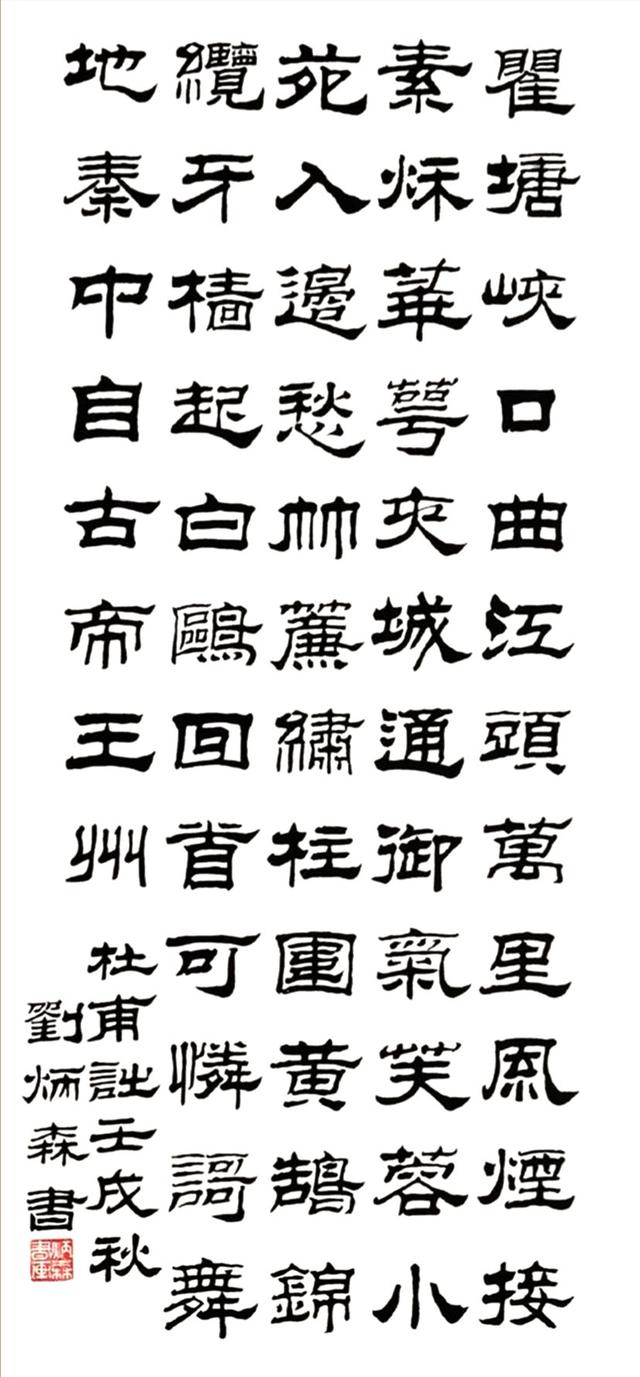 瞿塘峽口曲江頭萬里風煙接
素秌華萼夾城通御氣芙蓉小
苑入邊愁竹簾繡柱圍黃鵠錦
纜牙檣起白鷗回首可憐謌舞
地秦中自古帝王州
杜甫詩壬戌秋
劉炳森書